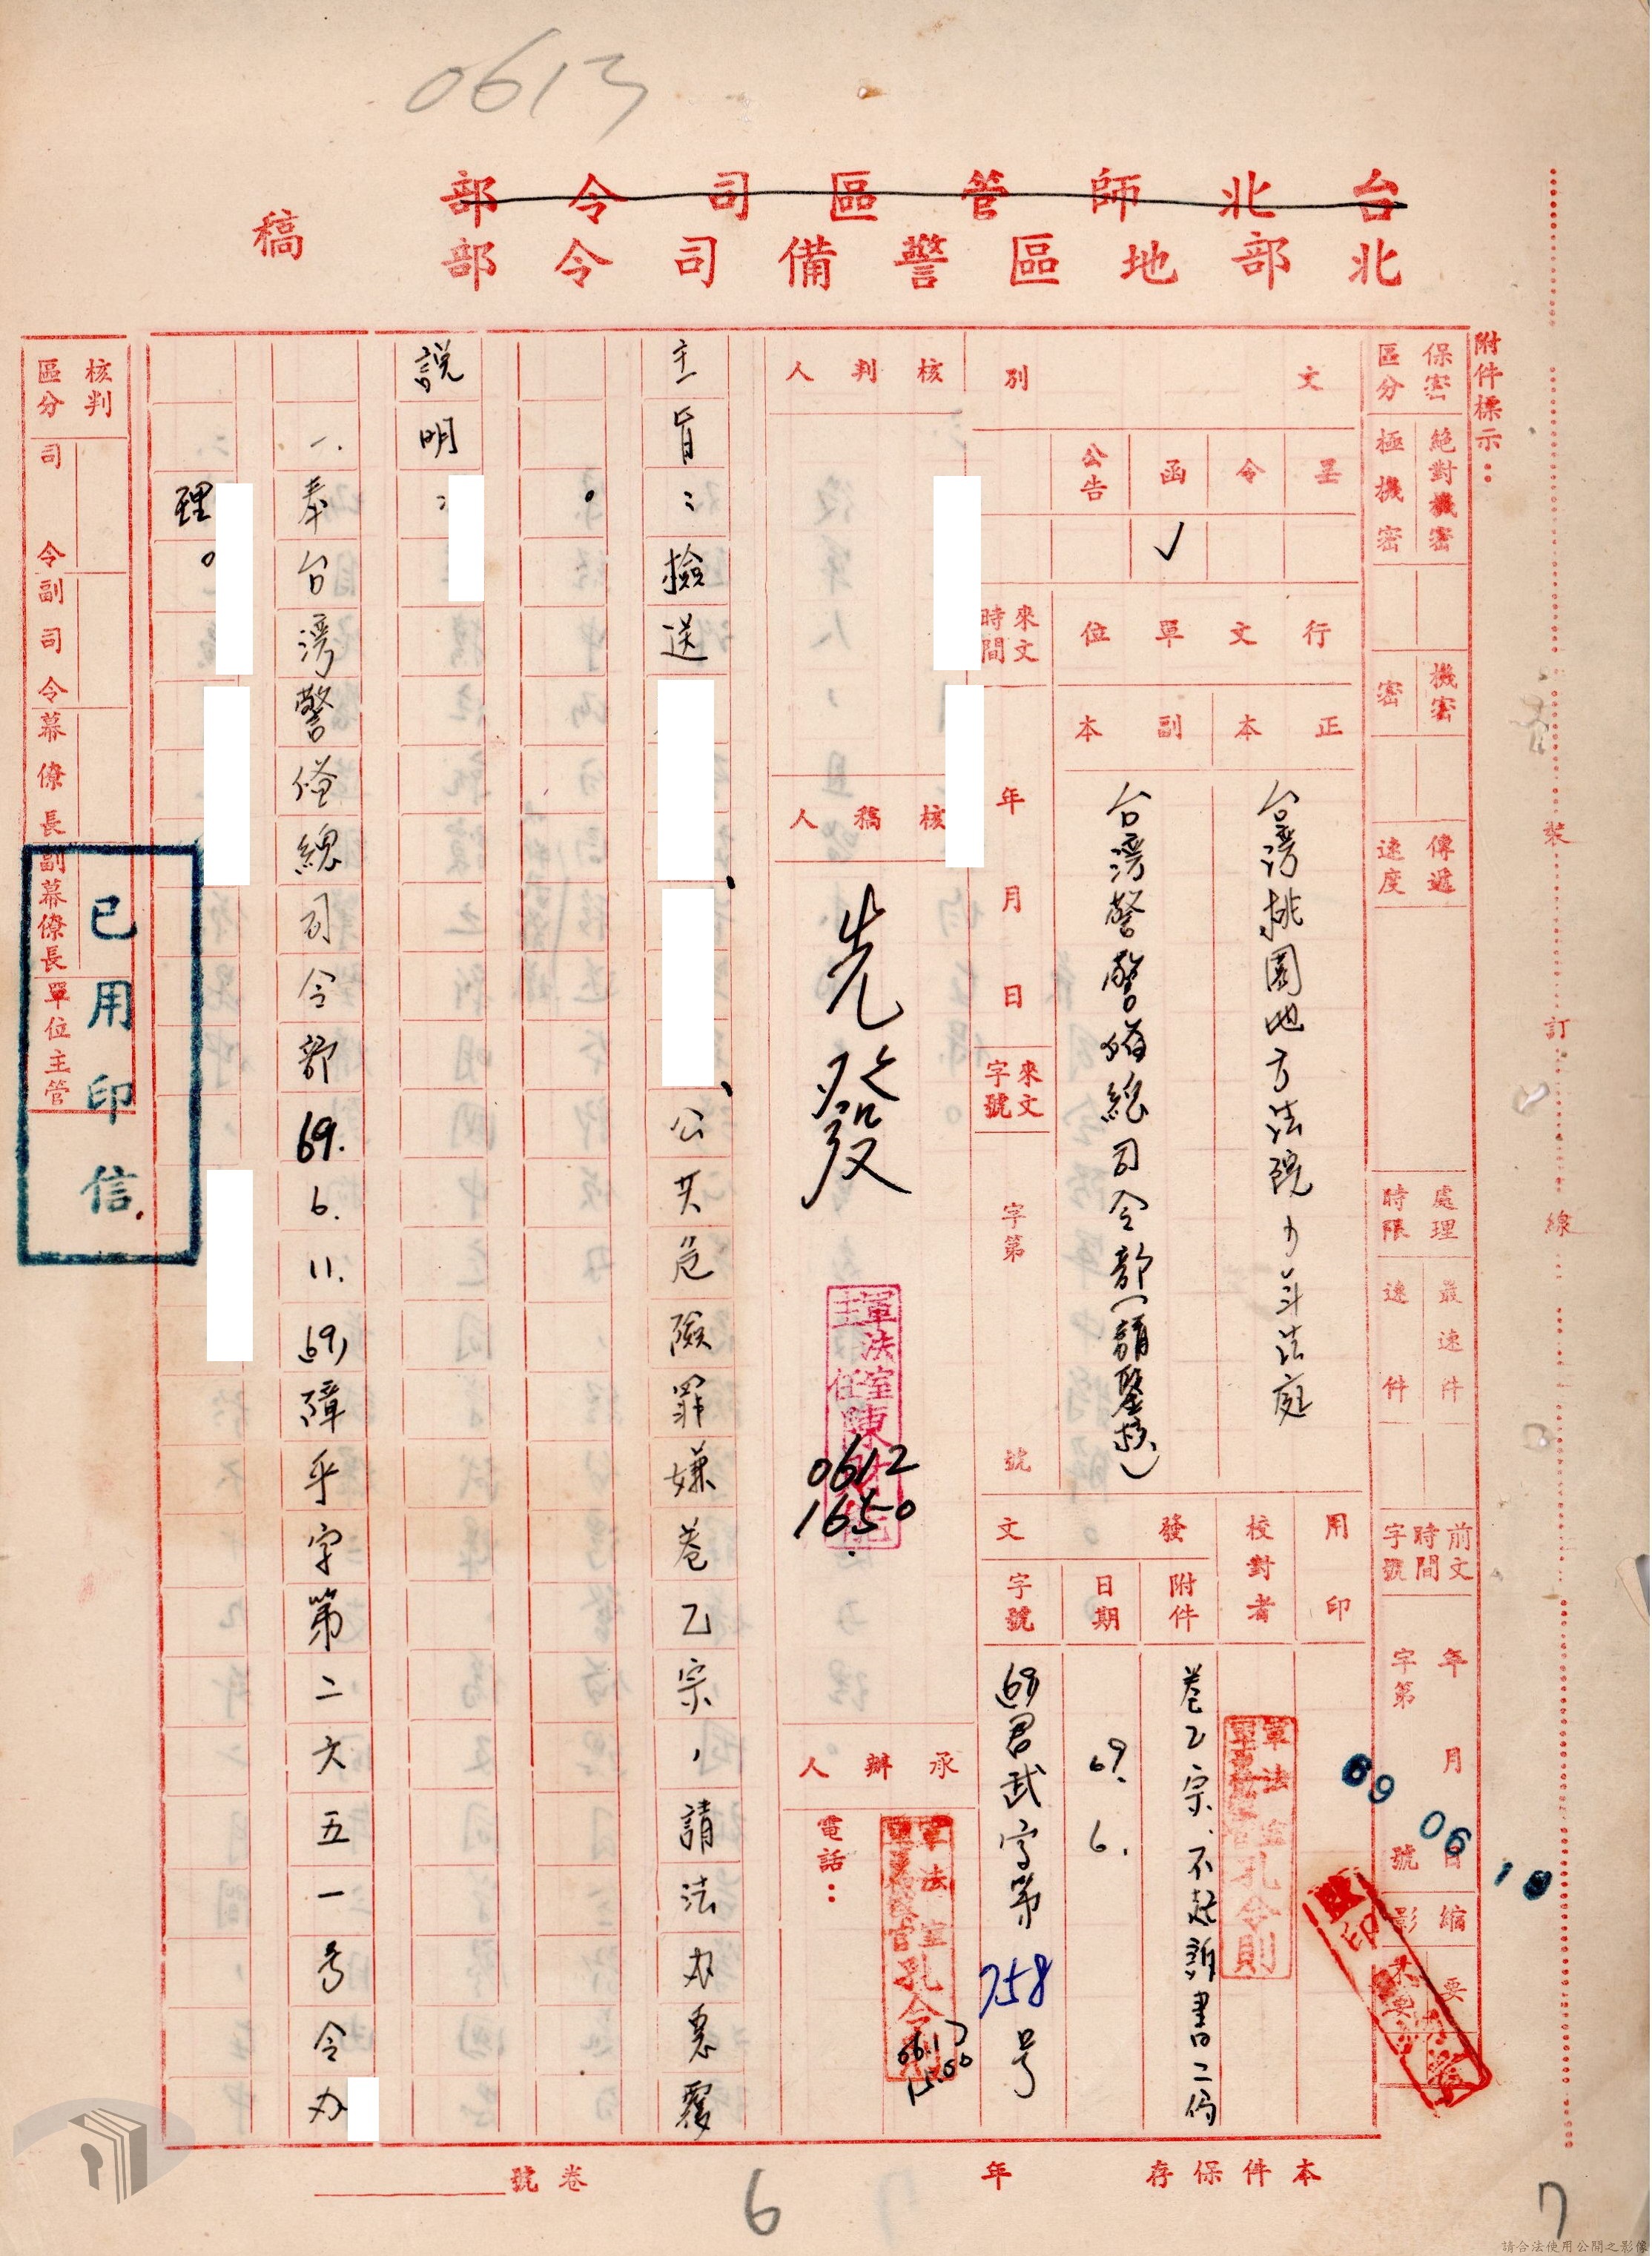 0613
台北師管區司令部
北部地區警備司令部
稿
附件標示：
保密區分
絕對機密
極機密
機密
密
傳遞速度
處理時限
最速件
速件
前文時間字號
年月日
字第號
縮影
要
不要
文別
呈
令
函
公告
✓
行文單位
正本
副本
台灣桃園地方法院少年法庭
台灣警警備總司令部(請鑒核)
來文時間
年月日
來文字號
字第號
用印
校對者
發文
附件
日期
字號
卷乙宗、不起訴書二份
69.6.
(69)君武字第758号
69 06 18
核判人
核稿人
先發
軍法室主任陳
0612
1650
承辦人
電話：
軍法室
孔令則
軍法室
孔令則
0613
1500
主旨：檢送
、
、公共危險罪嫌卷乙宗，請法办惠覆
。
說明：
一、奉台灣警俻總司令部69.6.11.(69)障平字第二六五一号令办
理。
核判區分
司令
副司令
幕僚長
副幕僚長
單位主管
已用印信
本件保存年
卷號
6
7
裝訂線
請合法使用公開之影像